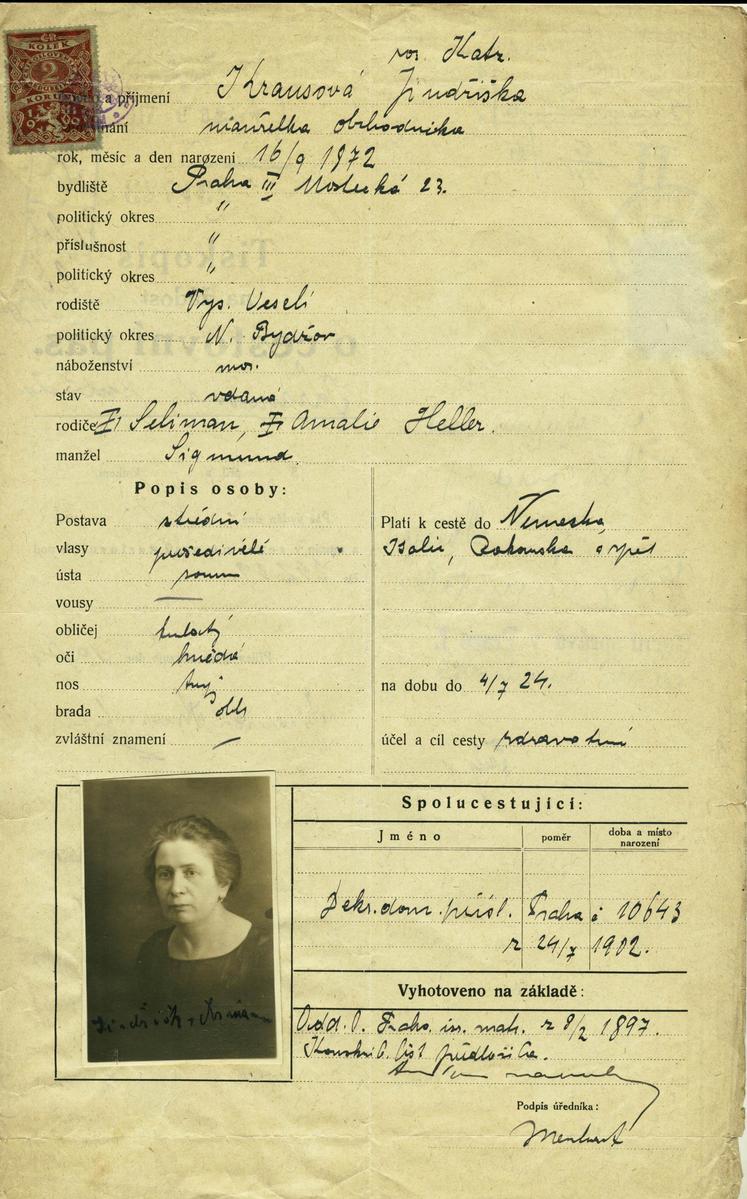 roz. Katz.
KOLEK
2
KORUNY
1919
jméno a příjmení Krausová Jindřiška
manželka obchodníka
rok, měsíc a den narození 16/9 1872
bydliště Praha III Mostecká 23.
politický okres "
příslušnost "
politický okres "
rodiště Vys. Veselí
politický okres N. Bydžov
náboženství mos.
stav vdaná
rodiče Seliman, Amalie Heller.
manžel Sigmund.
Popis osoby:
Postava střední
vlasy prošedivělé
ústa soum
vousy —
obličej kulatý
oči hnědé
nos tupý
brada obl.
zvláštní znamení —
Platí k cestě do Německa,
Italie, Rakouska a zpět
na dobu do 4/7 24.
účel a cíl cesty zdravotní
Spolucestující:
Jméno poměr doba a místo narození
Dekr. dom. přísl. Praha č 10643
z 24/7 1902.
Vyhotoveno na základě:
Odd. l. Praha is. mat. z 8/2 1897.
list předložila.
Podpis úředníka: